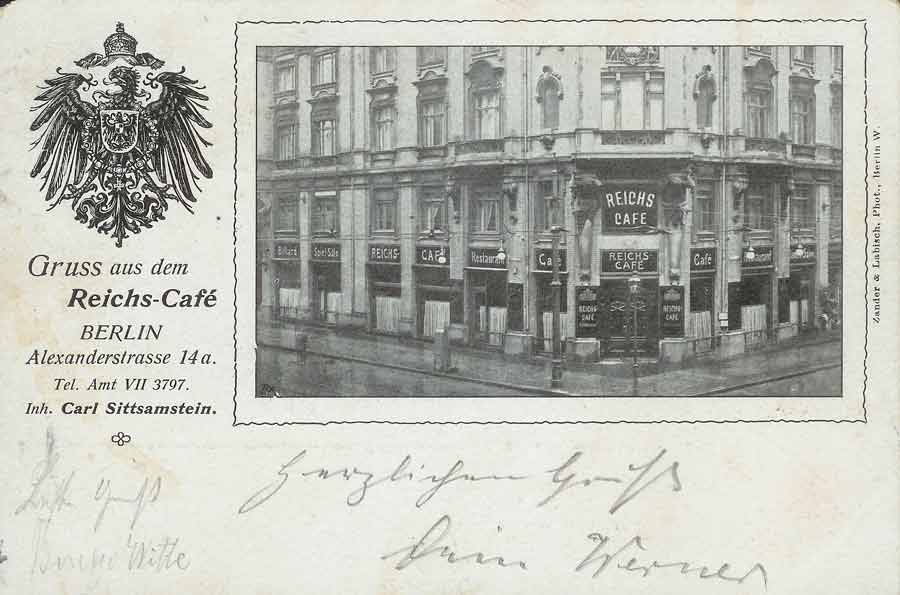 Gruss aus dem
Reichs-Café
BERLIN
Alexanderstrasse 14 a.
Tel. Amt VII 3797.
Inh. Carl Sittsamstein.
REICHS
CAFÉ
Billard
Spiel-Säle
REICHS-
CAFÉ
Restaurant
Café
REICHS-
CAFÉ
Café
Restaurant
REICHS
CAFÉ
REICHS-
CAFÉ
Zander & Labisch, Phot., Berlin W.
Herzlichen Gruß
Dein Werner
Gruß
Witte